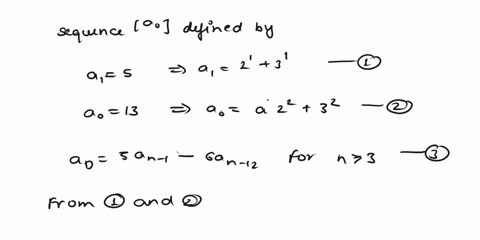 sequence [a₀] defined by
a₁ = 5 ⇒ a₁ = 2¹ + 3¹ — ①
a₀ = 13 ⇒ a₀ = a 2² + 3² — ②
a₀ = 5a_{n-1} - 6a_{n-12} for n ≥ 3 — ③
From ① and ②